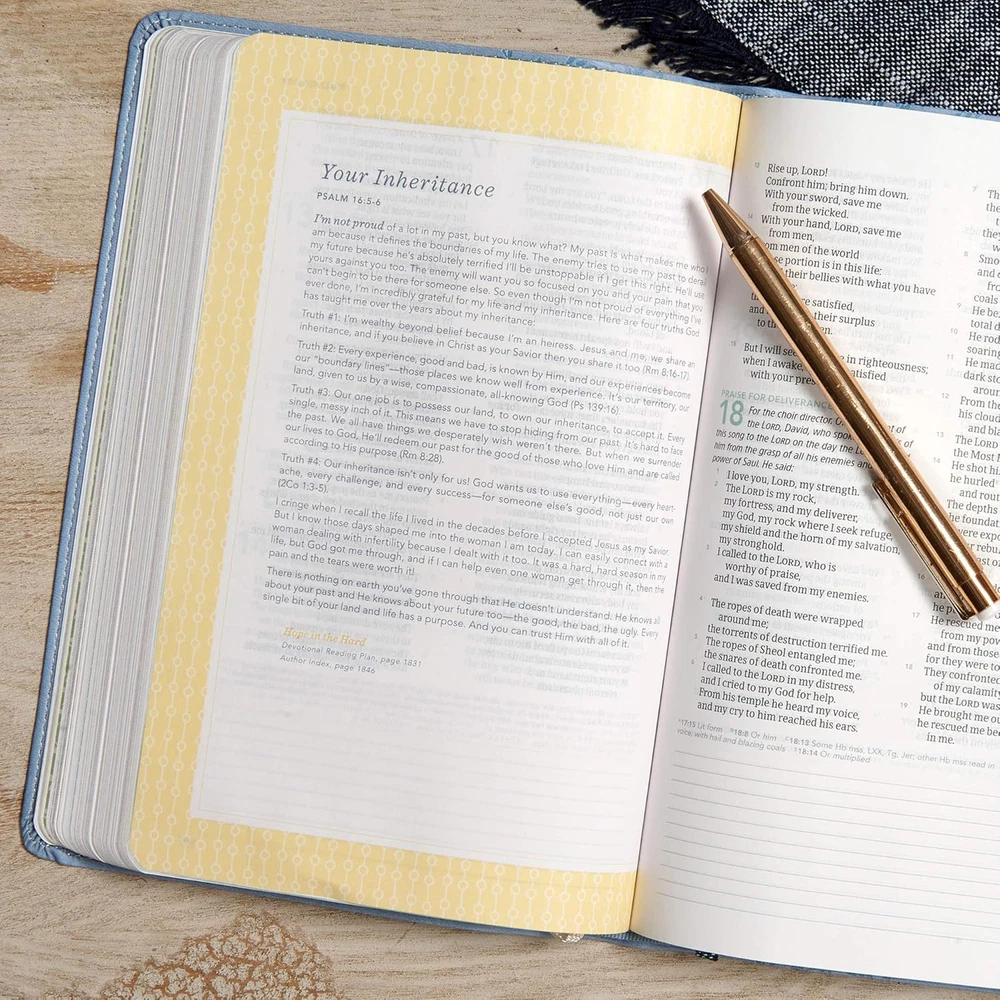 Your Inheritance
PSALM 16:5-6
I'm not proud of a lot in my past, but you know what? My past is what makes me who I
am because it defines the boundaries of my life. The enemy tries to use my past to derail
my future because he's absolutely terrified I'll be unstoppable if I get this right. He'll use
yours against you too. The enemy will want you so focused on you and your pain that you
can't begin to be there for someone else. So even though I'm not proud of everything I've
ever done, I'm incredibly grateful for my life and my inheritance. Here are four truths God
has taught me over the years about my inheritance:
Truth #1: I'm wealthy beyond belief because I'm an heiress. Jesus and me, we share an
inheritance, and if you believe in Christ as your Savior then you share it too (Rm 8:16-17).
Truth #2: Every experience, good and bad, is known by Him, and our experiences become
our "boundary lines"—those places we know well from experience. It's our territory, our
land, given to us by a wise, compassionate, all-knowing God (Ps 139:16).
Truth #3: Our one job is to possess our land, to own our inheritance, to accept it. Every
single, messy inch of it. This means we have to stop hiding from our past. It's hard to face
the past. We all have things we desperately wish weren't there. But when we surrender
our lives to God, He'll redeem our past for the good of those who love Him and are called
according to His purpose (Rm 8:28).
Truth #4: Our inheritance isn't only for us! God wants us to use everything—every heart-
ache, every challenge, and every success—for someone else's good, not just our own
(2Co 1:3-5).
I cringe when I recall the life I lived in the decades before I accepted Jesus as my Savior.
But I know those days shaped me into the woman I am today. I can easily connect with a
woman dealing with infertility because I dealt with it too. It was a hard, hard season in my
life, but God got me through, and if I can help even one woman get through it, then the
pain and the tears were worth it!
There is nothing on earth you've gone through that He doesn't understand. He knows all
about your past and He knows about your future too—the good, the bad, the ugly. Every
single bit of your land and life has a purpose. And you can trust Him with all of it.
Hope in the Hard
Devotional Reading Plan, page 1831
Author Index, page 1846
13 Rise up, LORD!
Confront him; bring him down.
With your sword, save me
from the wicked.
14 With your hand, LORD, save me
from men,
om men of the world
se portion is in this life:
their bellies with what you have
re satisfied,
and their surplus
to th en.
15 But I will see in righteousness;
when I awake, satisfied
with your pres
PRAISE FOR DELIVERANCE
18 For the choir director. O t of
the LORD, David, who spok of
this song to the LORD on the day the L
him from the grasp of all his enemies and
power of Saul. He said:
I love you, LORD, my strength.
2 The LORD is my rock,
my fortress, and my deliverer,
my God, my rock where I seek refuge,
my shield and the horn of my salvation,
my stronghold.
3 I called to the LORD, who is
worthy of praise,
and I was saved from my enemies.
4 The ropes of death were wrapped
around me;
the torrents of destruction terrified me.
5 The ropes of Sheol entangled me;
the snares of death confronted me.
6 I called to the LORD in my distress,
and I cried to my God for help.
From his temple he heard my voice,
and my cry to him reached his ears.
17:15 Lit form 18:8 Or him 18:13 Some Hb mss, LXX, Tg, Jer; other Hb mss read in
voice, with hail and blazing coals 18:14 Or multiplied
7 Th
the
t
they
8 Smo
and
fro
coals
9 He be
total d
10 He rod
soaring
11 He ma
dark sto
around
12 From the
his cloud
and bla
13 The LORD
the Most
14 He shot hi
he hurled
and rou
The depths
the foundat
were expo
rebu
16
an
17 He rescued me
from my pow
and from those
for they were to
18 They confronted
of my calamity
but the LORD was
19 He brought me ou
he rescued me bec
in me.